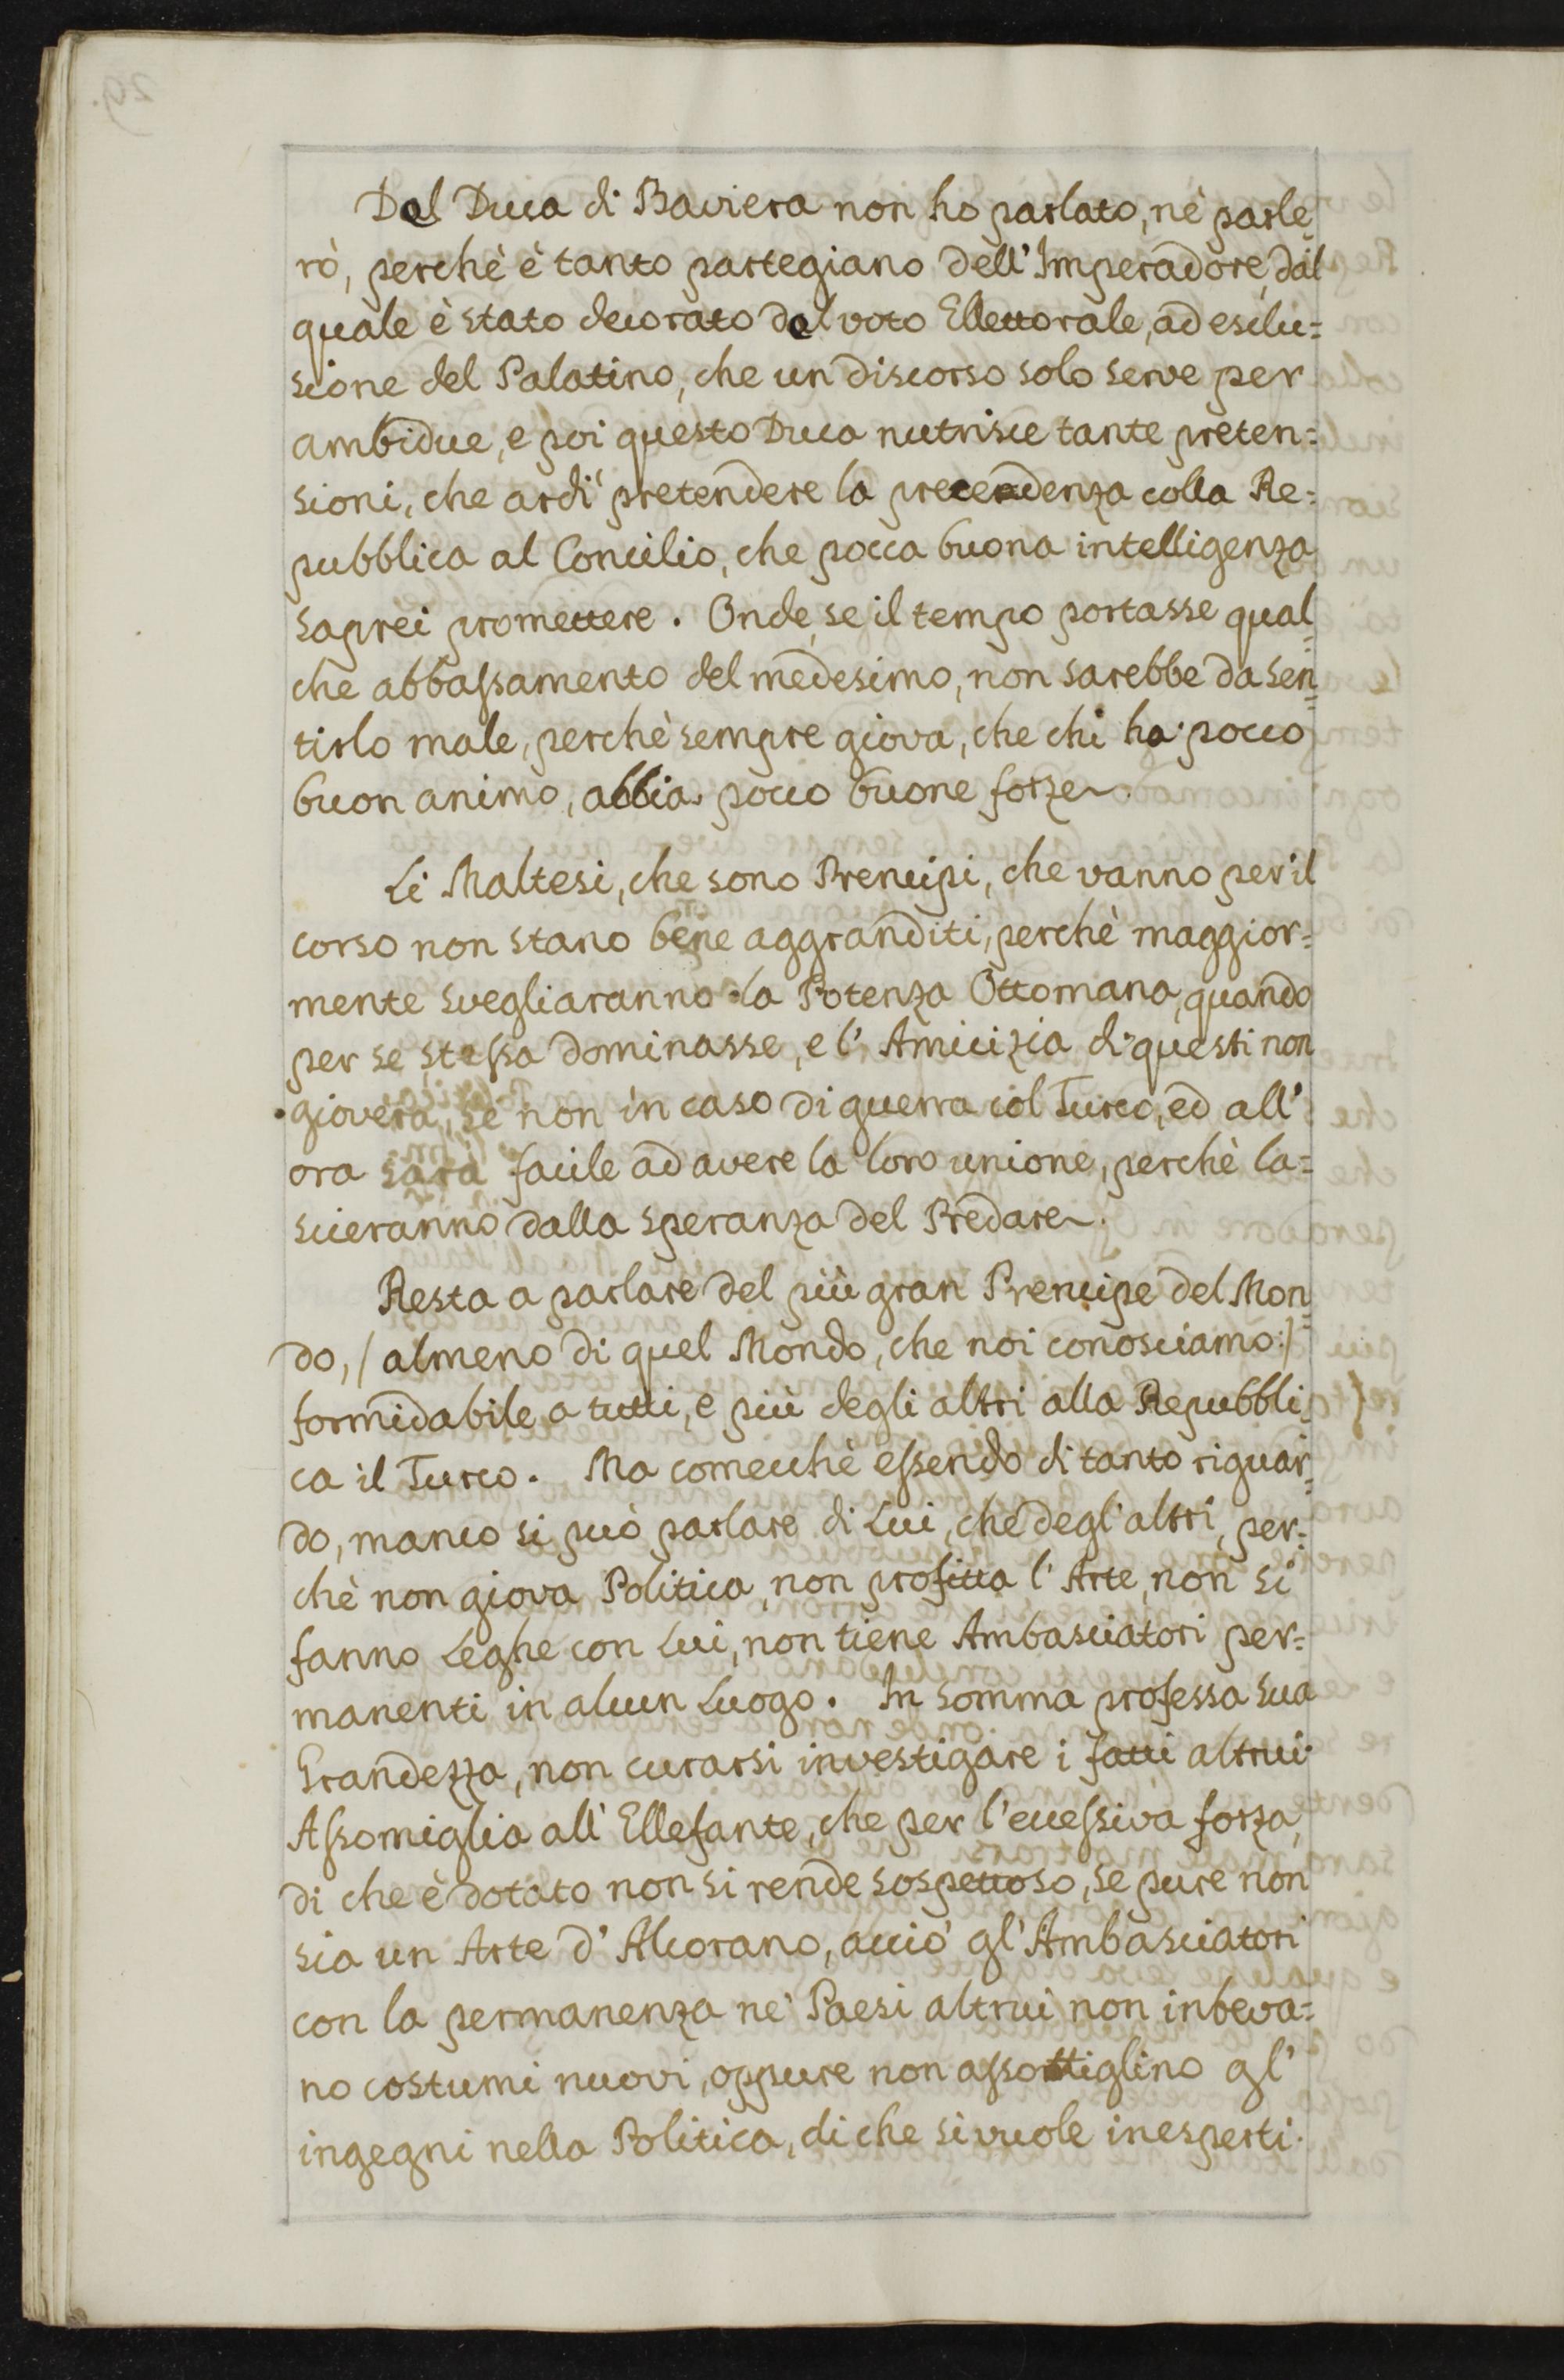 Del Duca di Baviera non ho parlato, nè parle
rò, perchè è tanto partegiano dell' Imperadore, dal
quale è stato decorato del voto Ellettorale, ad esclu=
sione del Palatino, che un discorso solo serve per
ambidue, e poi questo Duca nutrisce tante preten=
sioni, che ardì pretendere la precedenza colla Re=
pubblica al Concilio, che pocca buona intelligenza
saprei promettere. Onde, se il tempo portasse qual=
che abbaſsamento del medesimo, non sarebbe da sen=
tirlo male, perchè sempre giova, che chi ha pocco
buon animo, abbia pocco buone forze.
Li Maltesi, che sono Prencipi, che vanno per il
corso non stano bene aggranditi, perchè maggior=
mente svegliaranno la Potenza Ottomana, quando
per se steſsa dominasse, e l' Amicizia di questi non
gioverà, se non in caso di guerra col Turco, ed all'
ora sarà facile ad avere la loro unione, perchè la=
scieranno dalla speranza del Predare.
Resta a parlare del più gran Prencipe del Mon=
do, /almeno di quel Mondo, che noi conosciamo:/
formidabile a tutti, e più degli altri alla Repubbli=
ca il Turco. Ma comecchè eſsendo di tanto riguar=
do, manco si può parlare di Lui, che degl' altri, per=
chè non giova Politica, non profitta l' Arte, non si
fanno Leghe con Lui, non tiene Ambasciatori per=
manenti in alcun Luogo. In somma professa sua
Grandezza, non curarsi investigare i fatti altrui.
Aſsomiglia all' Ellefante, che per l' ecceſsiva forza,
di che è dotato non si rende sospettoso, se pure non
sia un Arte d' Alcorano, acciò gl' Ambasciatori
con la permanenza ne' Paesi altrui non inbeva=
no costumi nuovi, oppure non aſsottiglino gl'
ingegni nella Politica, di che si vuole inesperti.